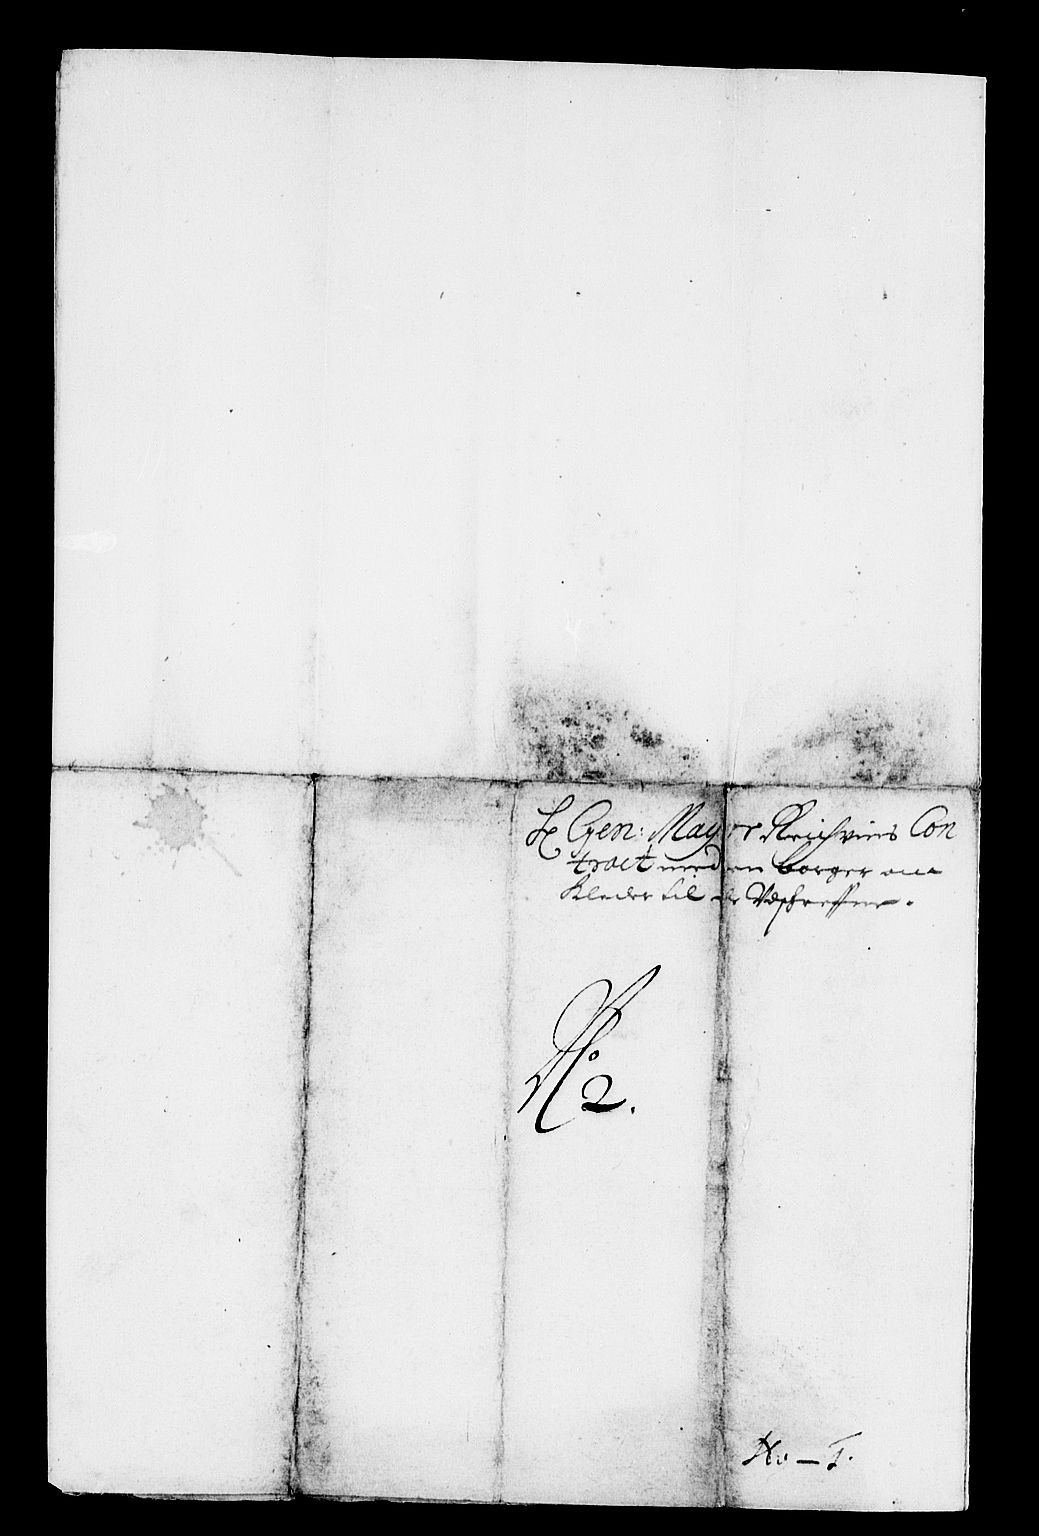 Hr Gen: Mayor Reichwins Con
tract med en borger om
Kleder til de
No 2.
No – 1.